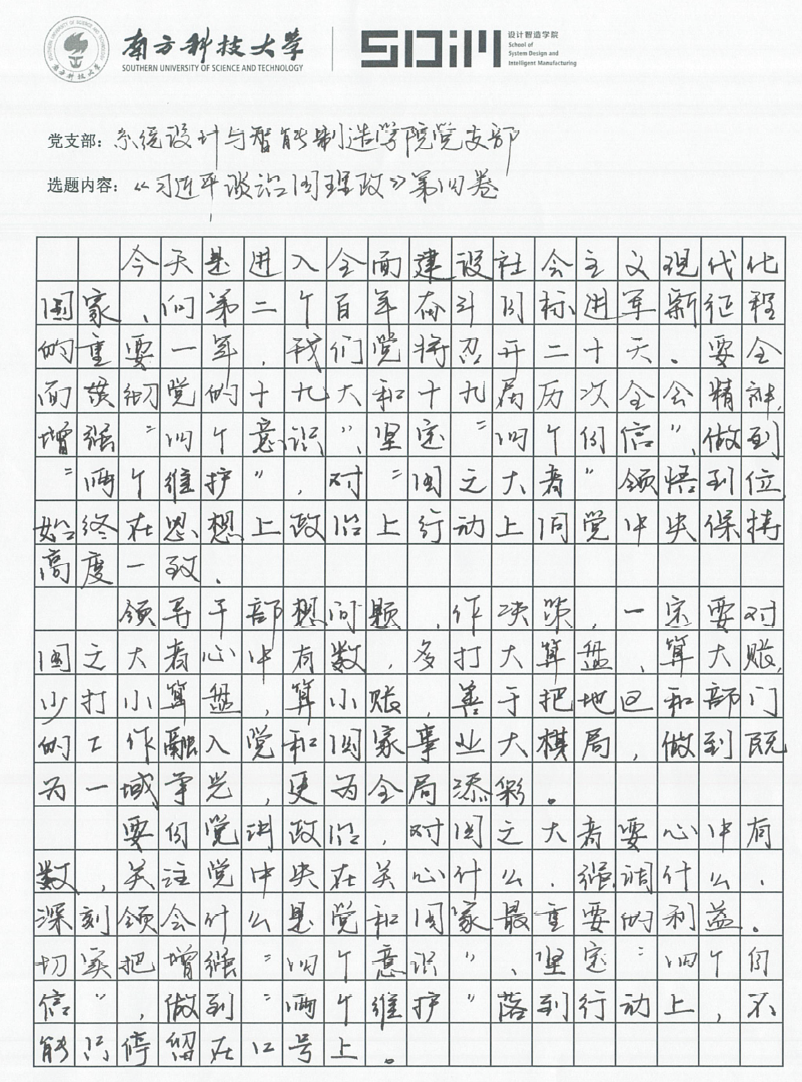 南方科技大学
SOUTHERN UNIVERSITY OF SCIENCE AND TECHNOLOGY
SDIM
设计智造学院
School of
System Design and
Intelligent Manufacturing
党支部：系统设计与智能制造学院党支部
选题内容：《习近平谈治国理政》第四卷
今天是进入全面建设社会主义现代化
国家、向第二个百年奋斗目标进军新征程
的重要一年，我们党将召开二十大。要全
面贯彻党的十九大和十九届历次全会精神，
增强“四个意识”、坚定“四个自信”、做到
“两个维护”，对“国之大者”领悟到位，
始终在思想上政治上行动上同党中央保持
高度一致。
领导干部想问题、作决策，一定要对
国之大者心中有数，多打大算盘、算大账，
少打小算盘、算小账，善于把地区和部门
的工作融入党和国家事业大棋局，做到既
为一域争光，更为全局添彩。
要自觉讲政治，对国之大者要心中有
数，关注党中央在关心什么、强调什么，
深刻领会什么是党和国家最重要的利益。
切实把增强“四个意识”、坚定“四个自
信”，做到“两个维护”落到行动上，不
能只停留在口号上。